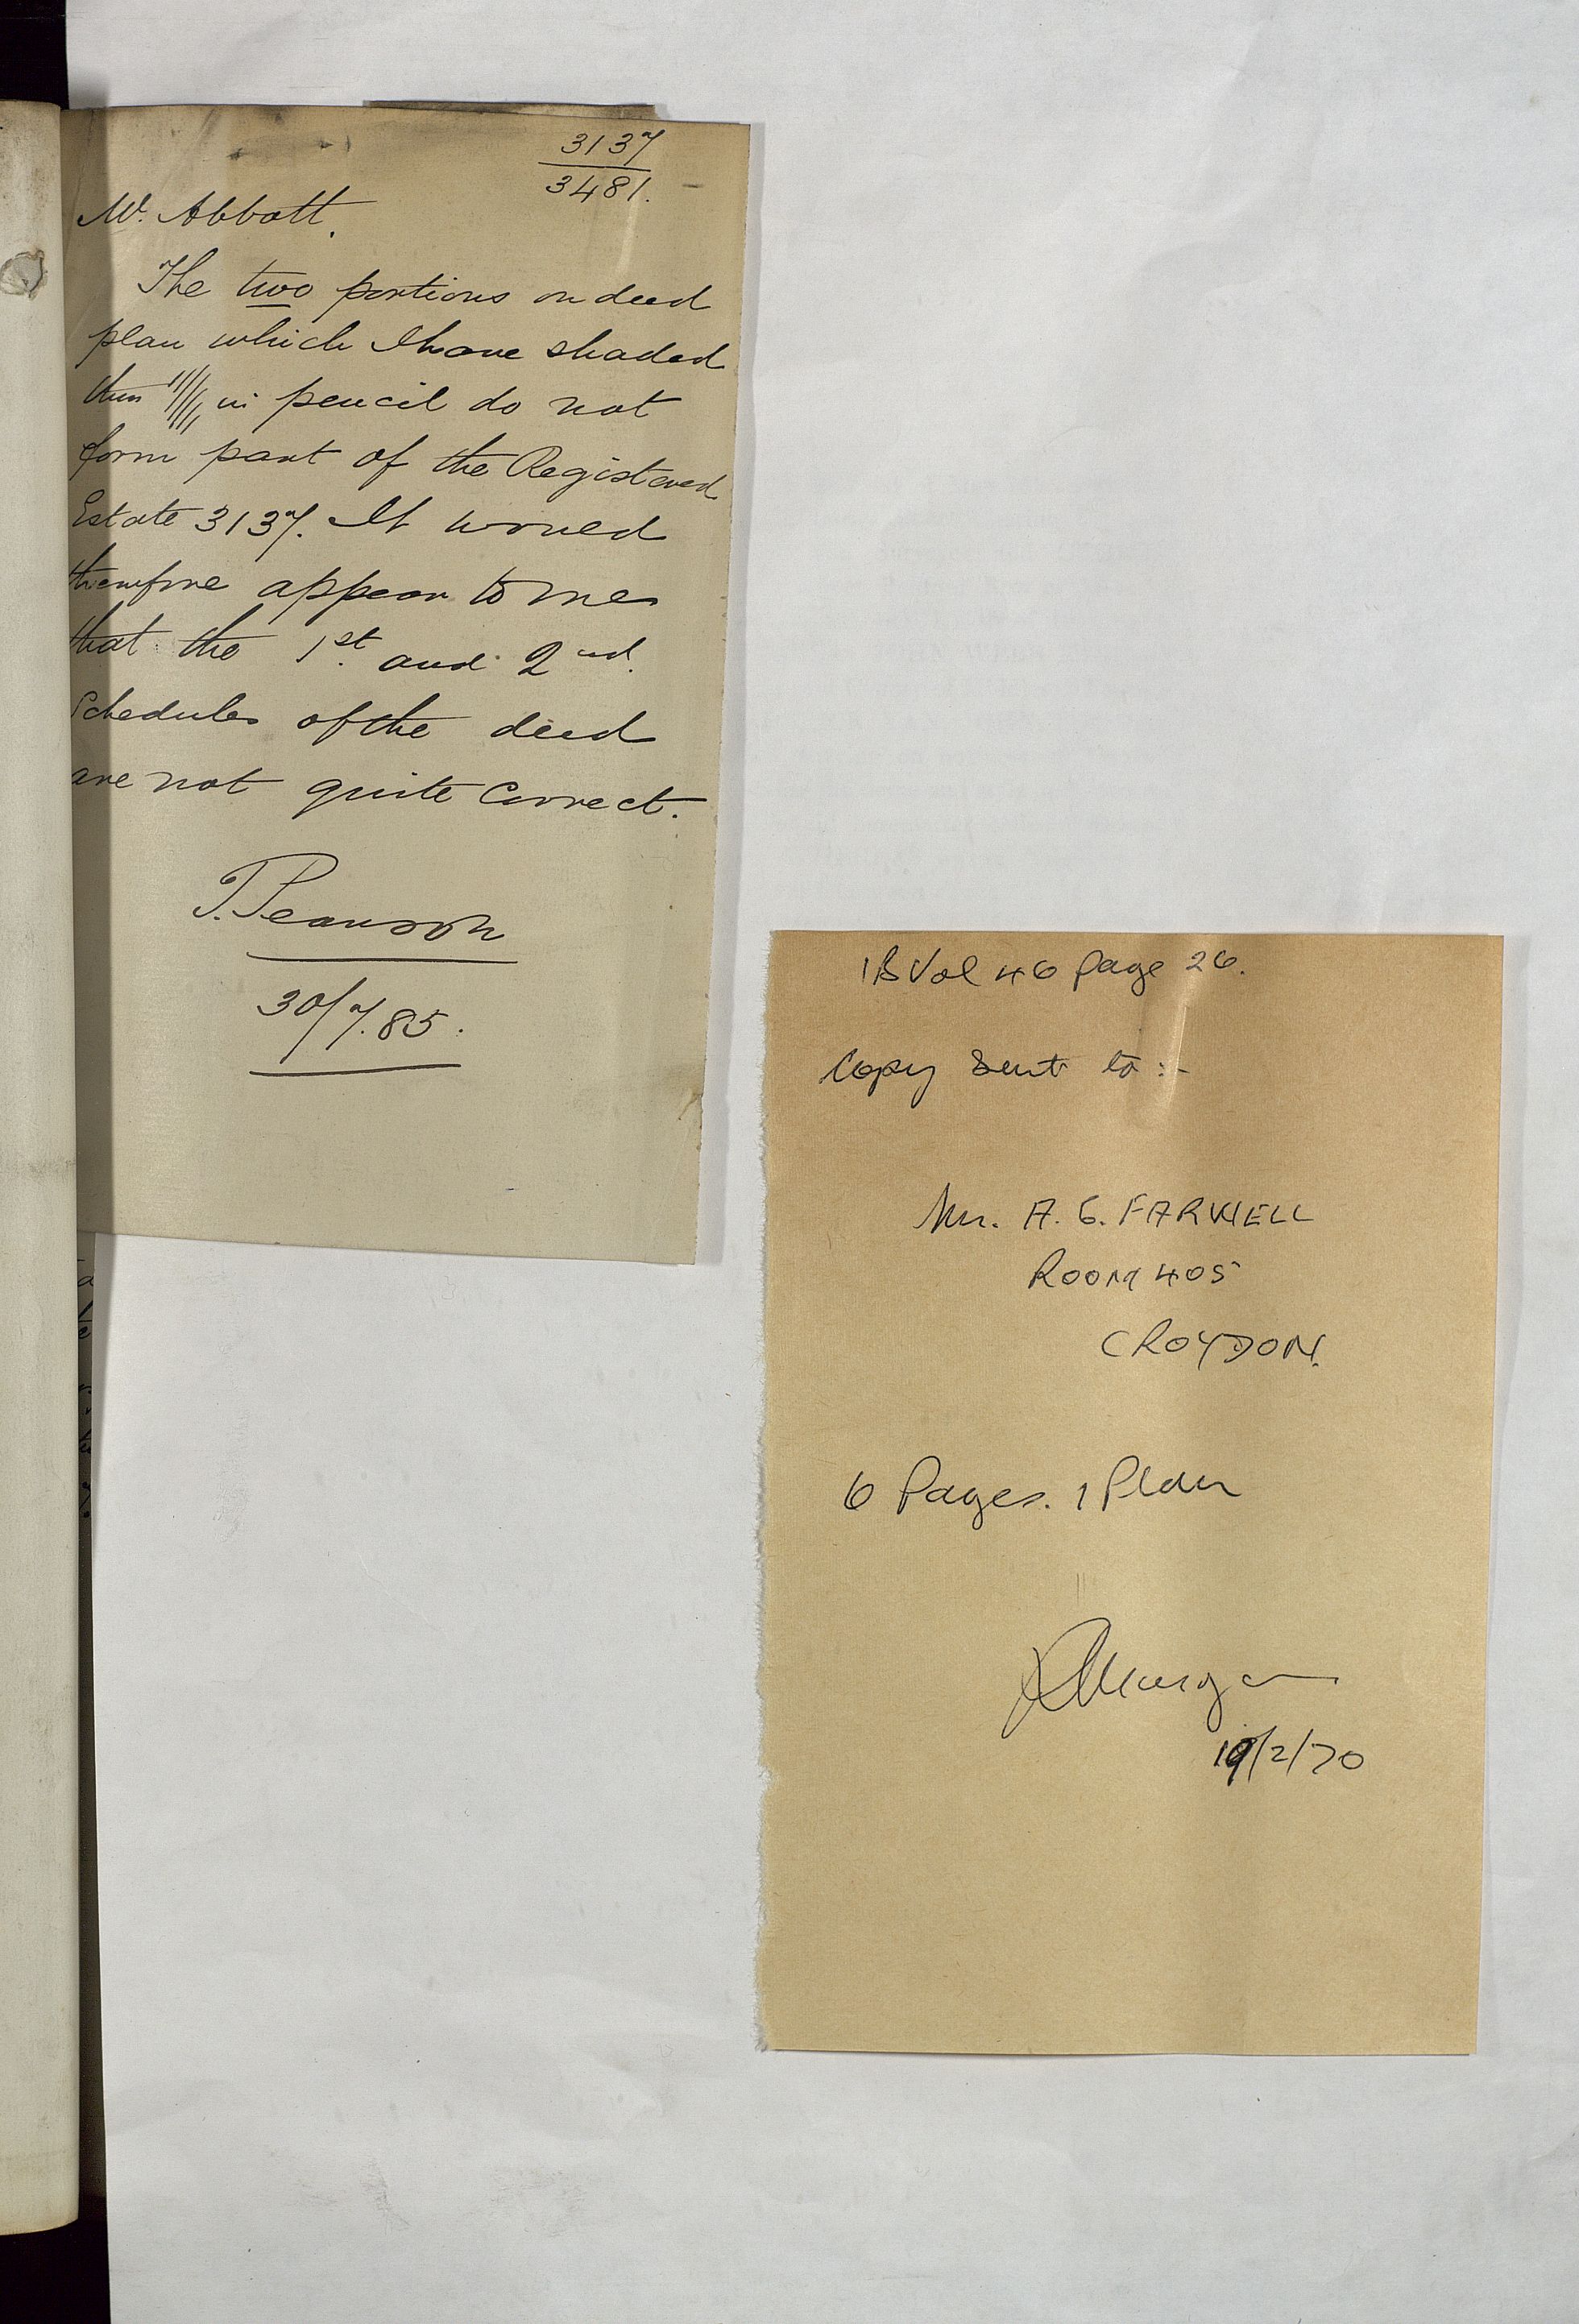 3137
3481.
Mr. Abbott.
The two portions on deed
plan which I have shaded
thus in pencil do not
form part of the Registered
Estate 3137. It would
therefore appear to me
that the 1st. and 2nd.
Schedules of the deed
are not quite correct.
T. Pearson
30/7.85.
1B Vol 46 page 26.
Copy sent to :-
Mr. A. G. FARWELL
ROOM 405
CROYDON.
6 Pages. 1 Plan
Morgan
19/2/70